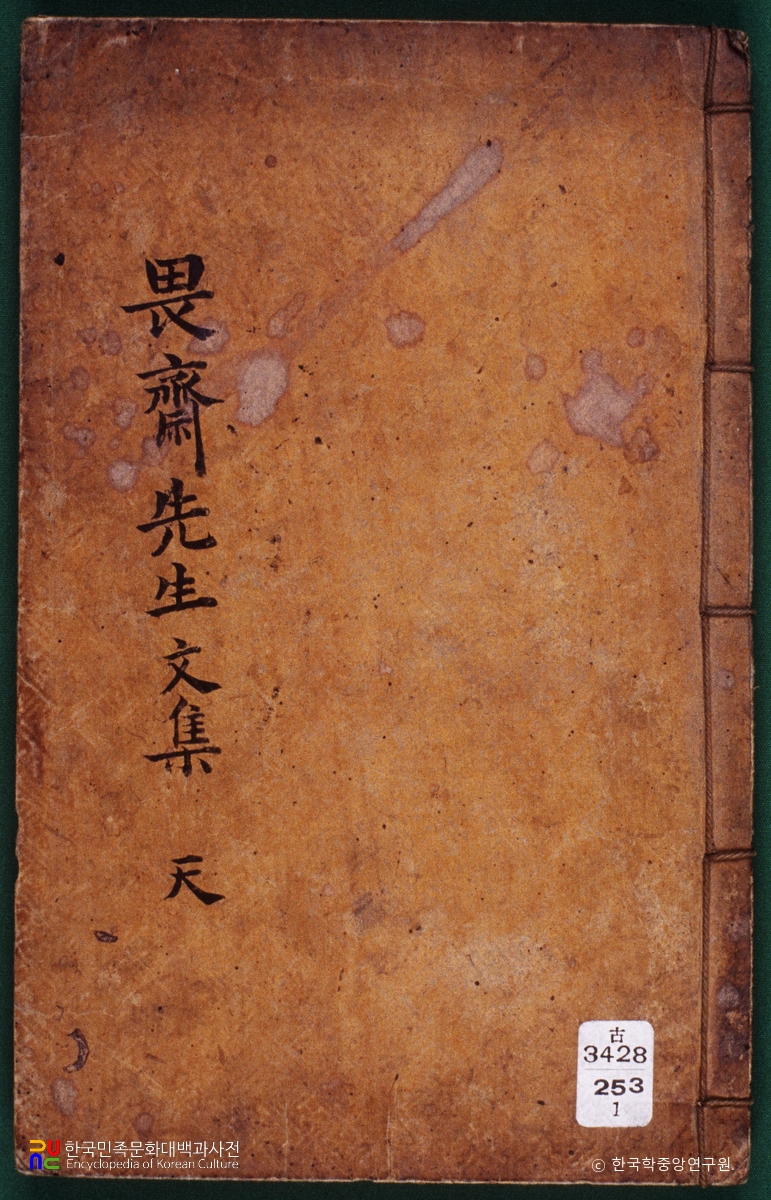 畏齋先生文集 天
古
3428
253
1
한국민족문화대백과사전
Encyclopedia of Korean Culture
© 한국학중앙연구원